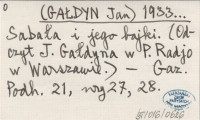 (GAŁDYN Jan) 1933...
Sabała i jego bajki. (Od-
czyt J. Gałdyna w P. Radjo
w Warszawie.) — Gaz.
Podh. 21, nry 27, 28.